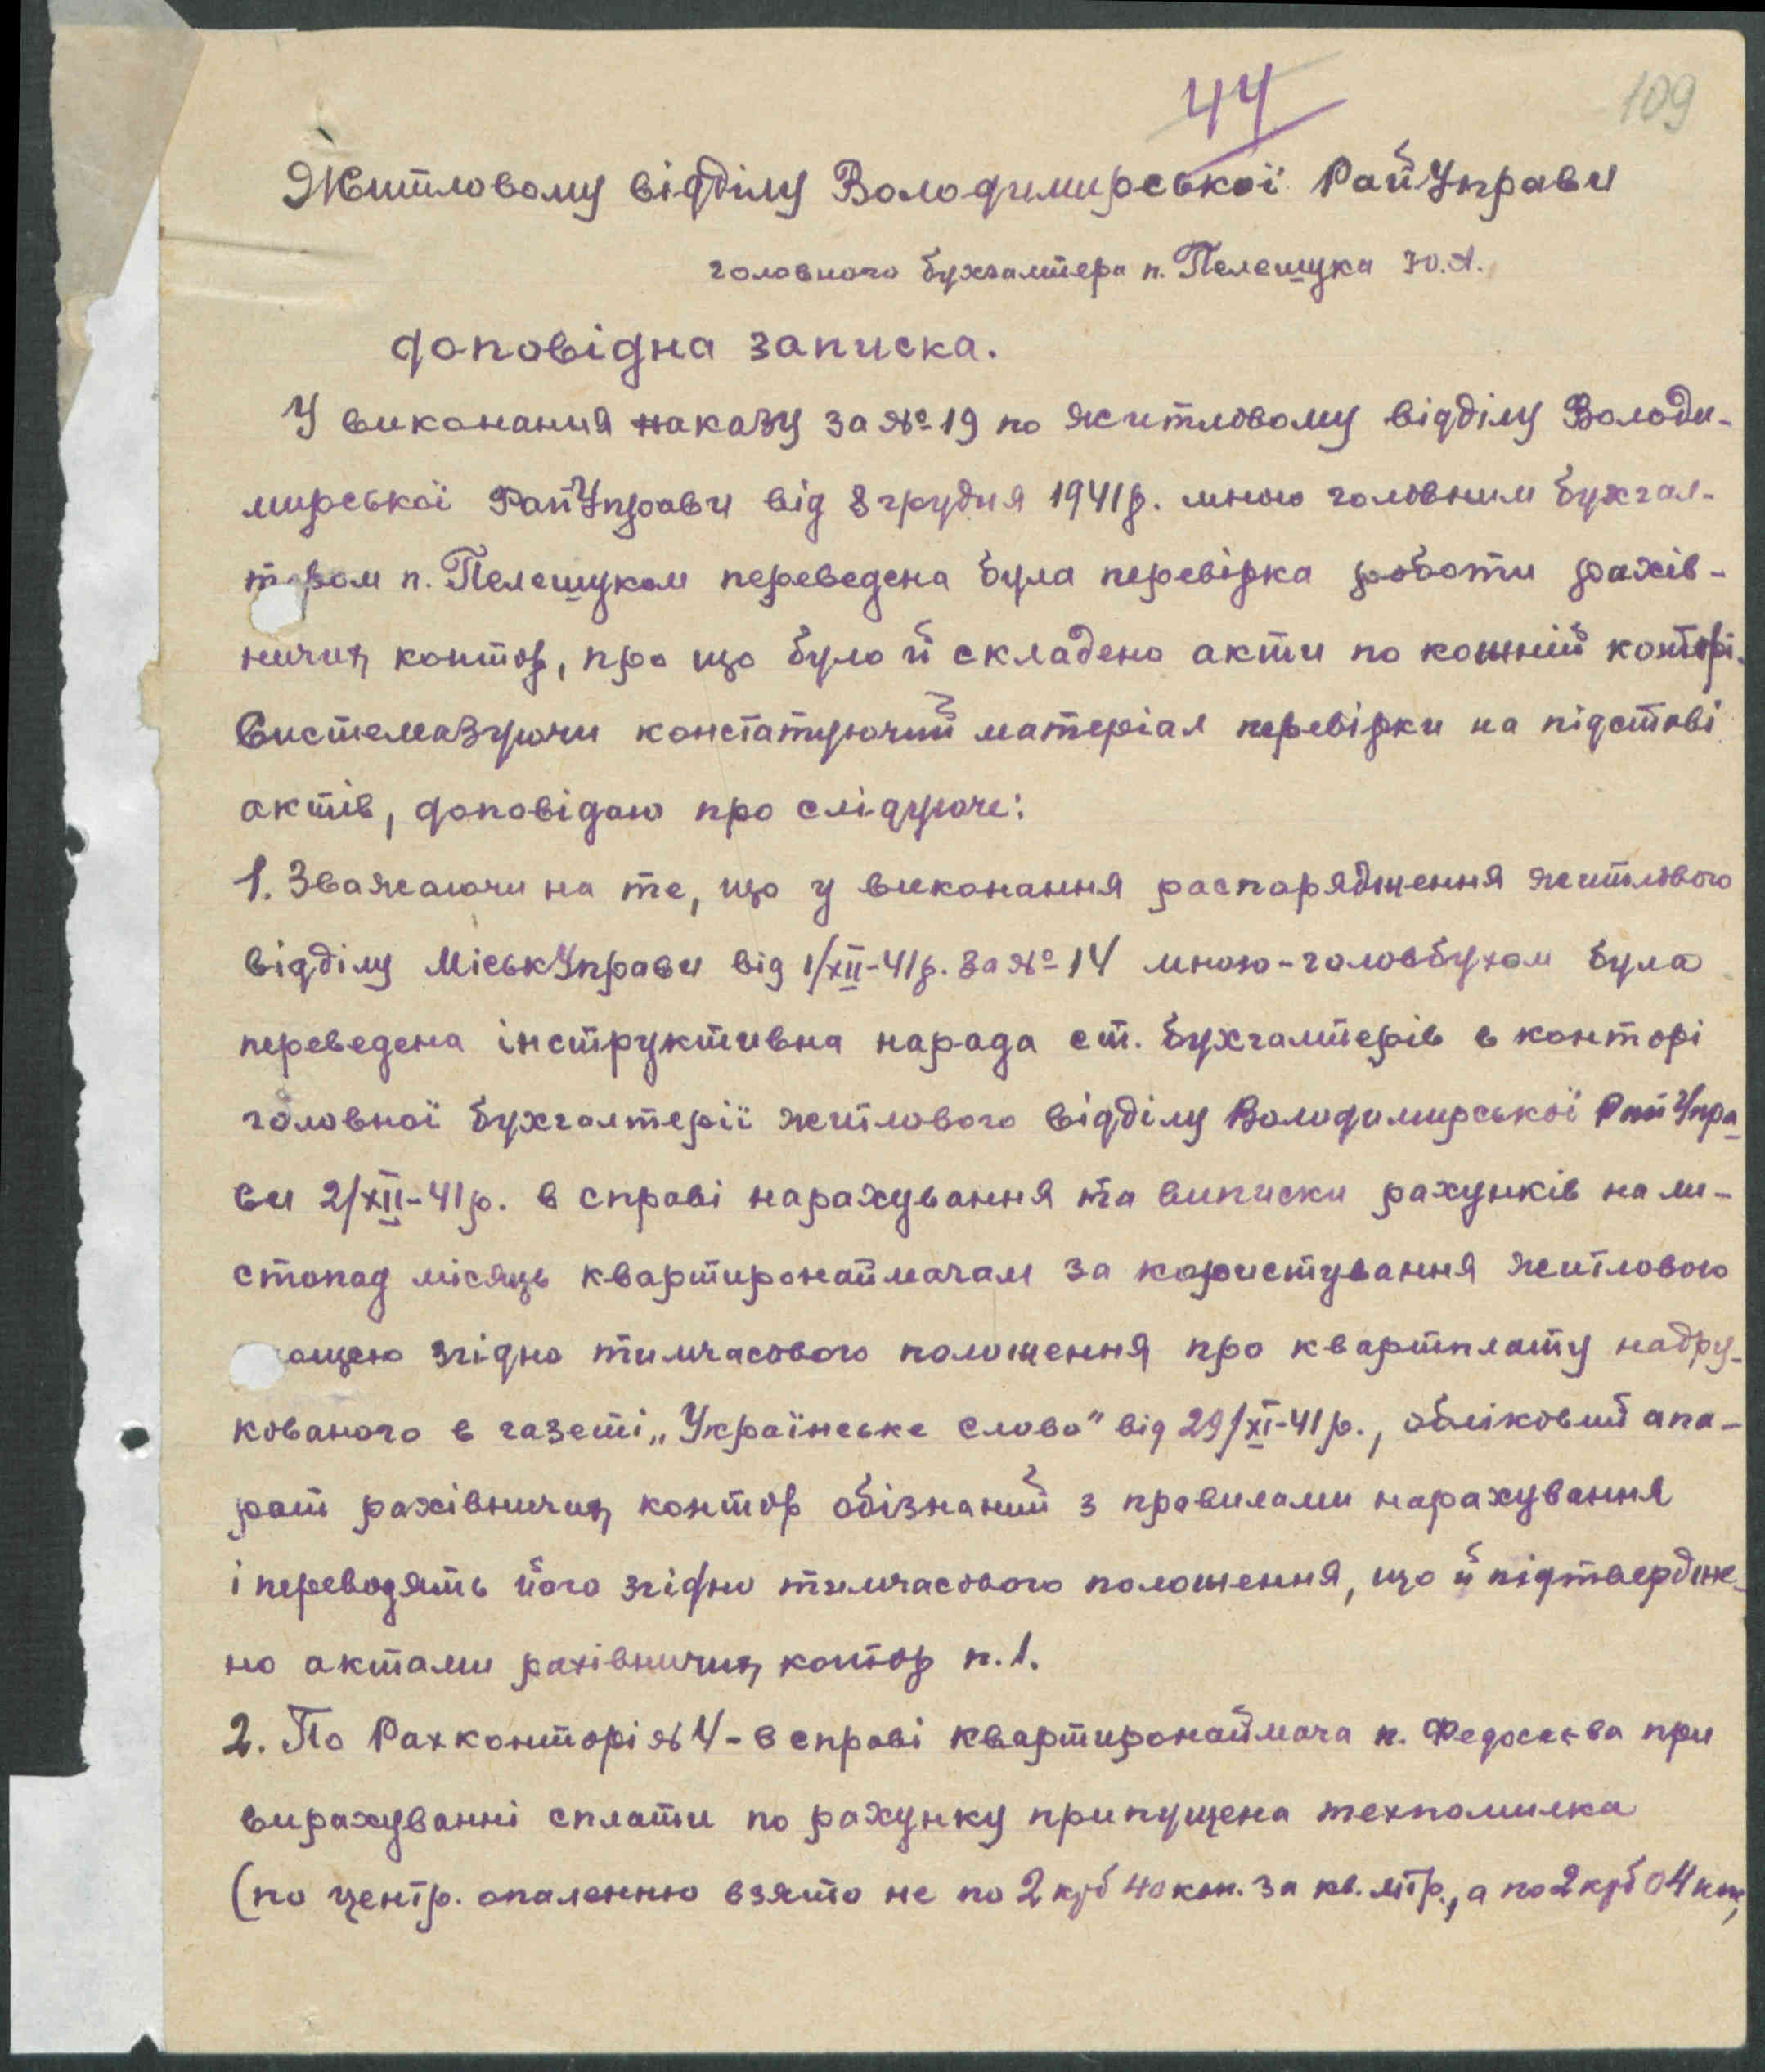 44
109
Житловому відділу Володимирської РайУправи
головного бухгалтера п. Пелешука Ю.А.
доповідна записка.
У виконання наказу за № 19 по житловому відділу Володи-
мирської РайУправи від 8 грудня 1941 р. мною головним бухгал-
тером п. Пелешуком переведена була перевірка роботи рахів-
ничих контор, про що було й складено акти по кожній конторі.
Систематизуючи констатуючий матеріал перевірки на підставі
актів, доповідаю про слідуюче:
1. Зважаючи на те, що у виконання распорядження житлового
відділу МіськУправи від 1/XII-41 р. за № 14 мною-головбухом була
переведена інструктивна нарада ст. бухгалтерів в конторі
головної бухгалтерії житлового відділу Володимирської РайУпра-
ви 2/XII-41 р. в справі нарахування та виписки рахунків на ли-
стопад місяць квартиронаймачам за користування житловою
ощею згідно тимчасового положення про квартплату надру-
кованого в газеті „Українське слово" від 29/XI-41 р., обліковий апа-
рат рахівничих контор обізнаний з правилами нарахування
і переводять його згідно тимчасового положення, що й підтвердже-
но актами рахівничих контор п. 1.
2. По Рахконторі № 4 - в справі квартиронаймача п. Федосєєва при
вирахуванні сплати по рахунку припущена техпомилка
(по центр. опаленню взято не по 2 крб 40 коп. за кв. мтр., а по 2 крб 04 коп,